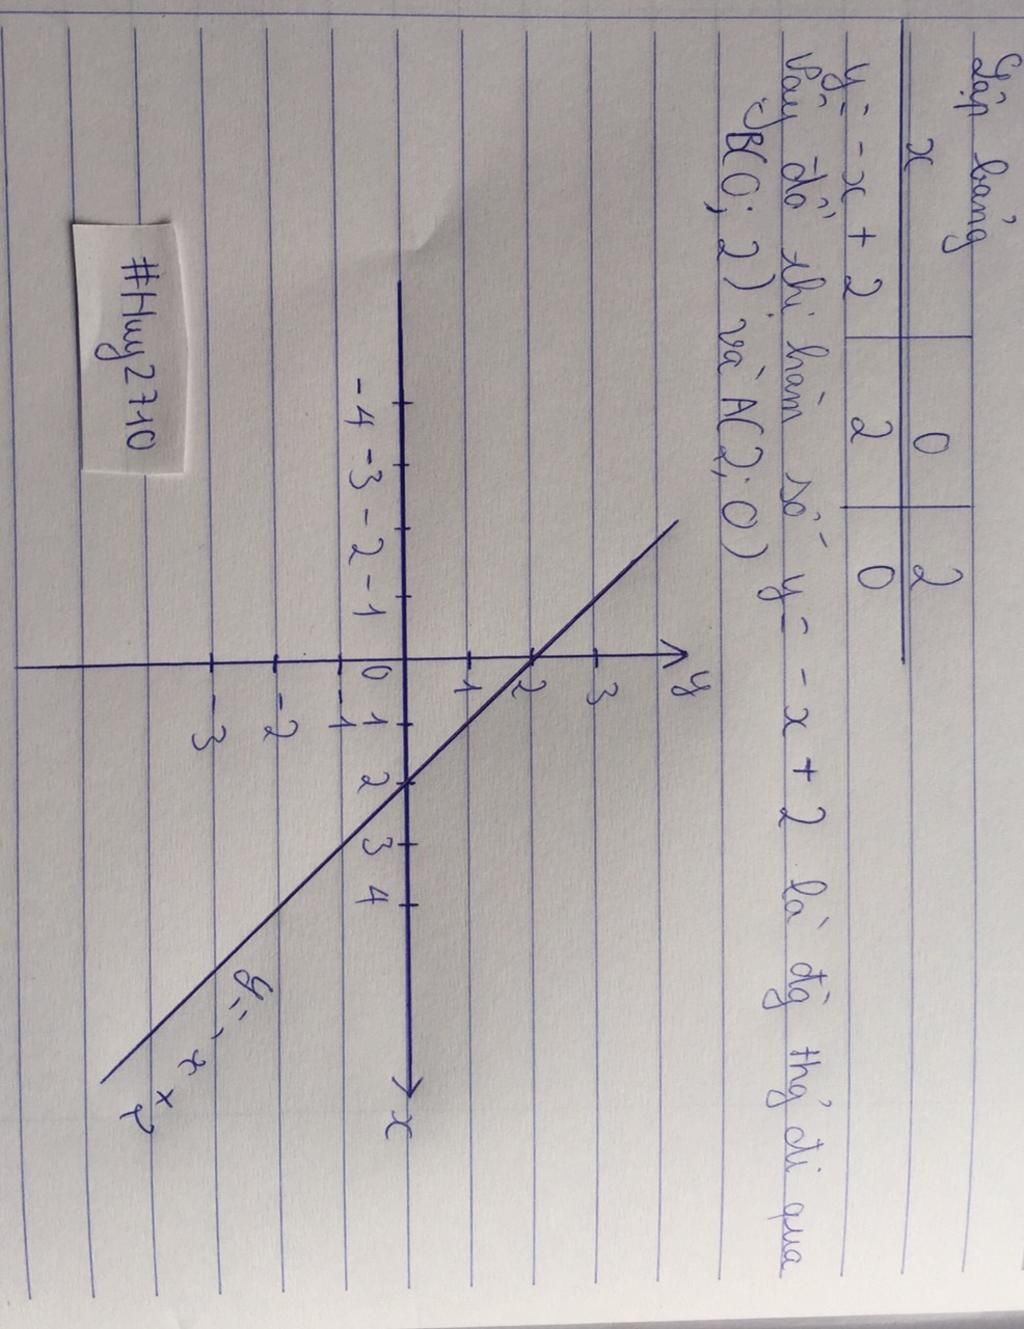 Lập bảng
x 0 2
y = -x + 2 2 0
Vậy đồ thị hàm số y = -x + 2 là đg thg đi qua
B(0; 2) và A(2; 0)
y
3
2
1
-4 -3 -2 -1 0 1 2 3 4 x
-1
-2
-3
y = -x + 2
#Huy2710